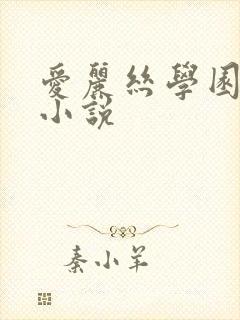 愛麗絲學園
小說
秦小羊